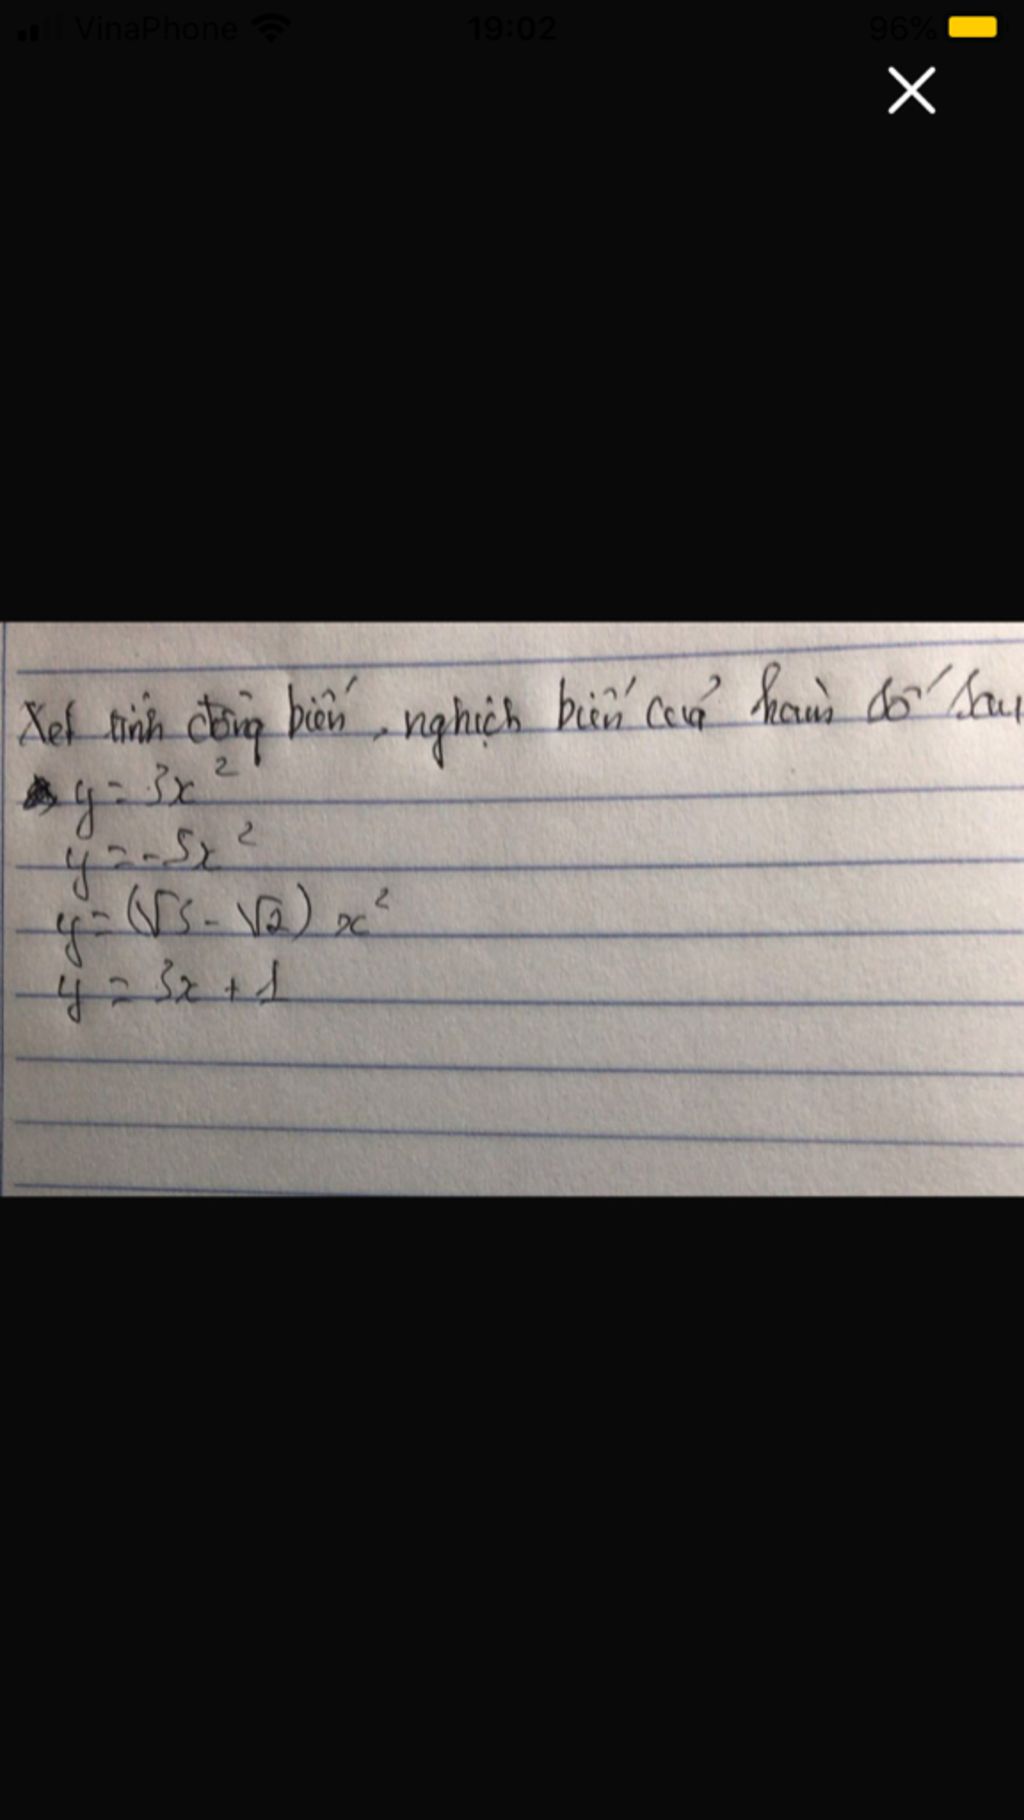 VinaPhone 19:02 96%
Xét tính đồng biến, nghịch biến củả hàm số sau
y = 3x²
y = -5x²
y = (√5 - √2) x²
y = 3x + 1